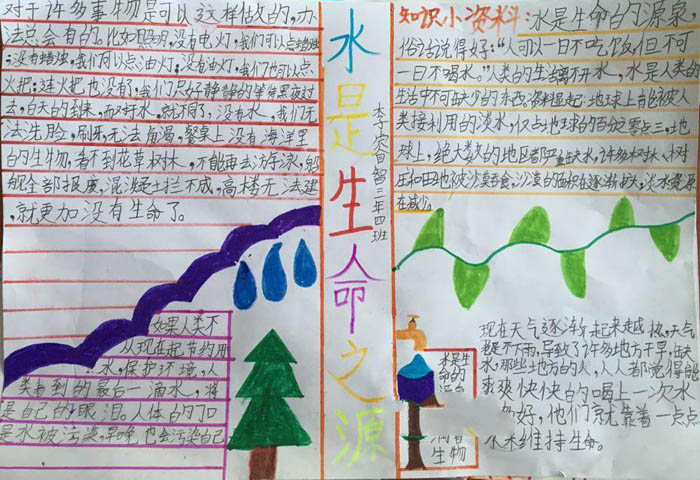 对于许多事物是可以这样做的,办
法总会有的。比如照明,没有电灯,我们可以点蜡烛
;没有蜡烛,我们可以点油灯;没有油灯,我们也可以点
火把;连火把也没有,我们只好静静的等待黑夜过
去,白天的到来,而对于水,就不同了,没有水,我们无
法洗脸,刷牙,无法解渴,餐桌上没有海洋里
的生物,看不到花草树木,不能再去游泳,船
舰全部报废,混泥土拦不成,高楼无法建
,就更加没有生命了。
水是生命之源
三年四班
知识小资料:水是生命的源泉
俗话说得好:“人可以一日不吃饭,但不可
一日不喝水。”人类的生活离不开水,水是人类的
生活中不可缺少的东西。资料显起:地球上能被人
类接利用的淡水,仅占地球的百分之零点三,地
球上,绝大数的地区都严重缺水,许多树林、村
庄和田也被沙漠吞食,沙漠的面积在逐渐扩大,淡水资源
在减少。
如果人类不
从现在起节约用
水,保护环境,人
类看到的最后一滴水,将
是自己的眼泪。人体的70
是水被污染,早晚也会污染自己
水是生
命的
生物
现在天气逐渐起来越热,天气
总是不下雨,导致了许多地方干旱,缺
水,那些地方的人,人人都觉得能
爽爽快快的喝上一次水
好,他们就靠着一点点
水来维持生命。